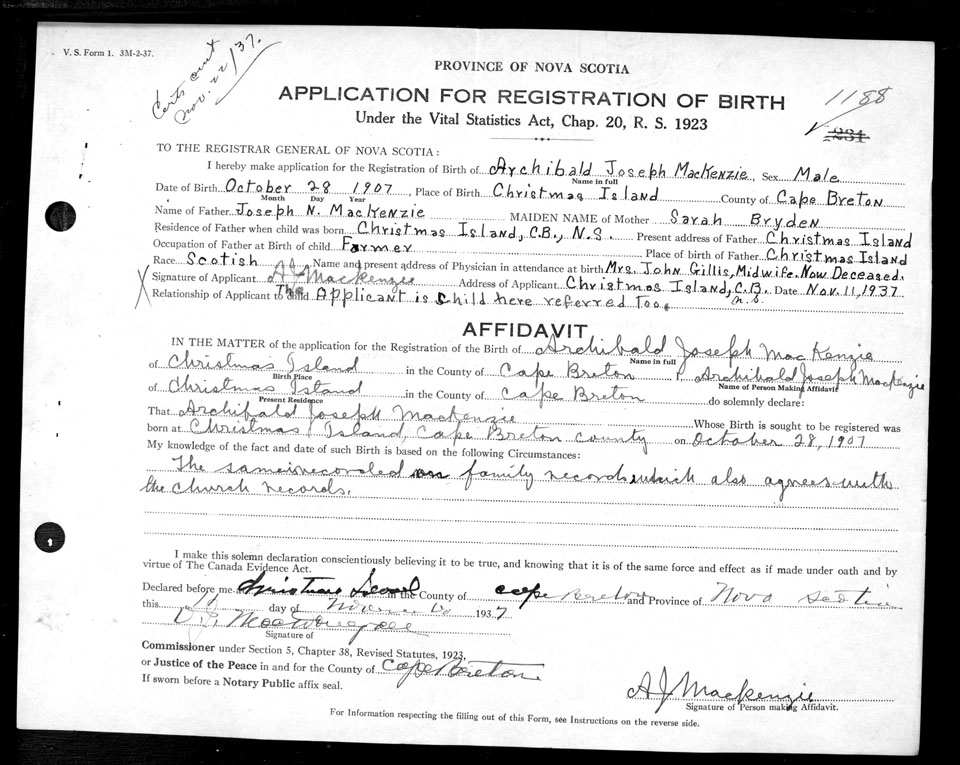 V. S. Form 1. 3M-2-37.
Certs out
Nov. 22/37.
PROVINCE OF NOVA SCOTIA
APPLICATION FOR REGISTRATION OF BIRTH
Under the Vital Statistics Act, Chap. 20, R. S. 1923
1188
231
TO THE REGISTRAR GENERAL OF NOVA SCOTIA:
I hereby make application for the Registration of Birth of Archibald Joseph MacKenzie Sex Male
Name in full
Date of Birth October 28 1907, Place of Birth Christmas Island County of Cape Breton
Month Day Year
Name of Father Joseph N. MacKenzie MAIDEN NAME of Mother Sarah Bryden
Residence of Father when child was born Christmas Island, C.B., N.S. Present address of Father Christmas Island
Occupation of Father at Birth of child Farmer Place of birth of Father Christmas Island
Race Scotish Name and present address of Physician in attendance at birth Mrs. John Gillis, Midwife. Now Deceased.
Signature of Applicant A J MacKenzie Address of Applicant Christmas Island, C.B. N.S. Date Nov. 11, 1937
Relationship of Applicant to child The Applicant is child here referred too.
AFFIDAVIT
IN THE MATTER of the application for the Registration of the Birth of Archibald Joseph MacKenzie
Name in full
of Christmas Island in the County of Cape Breton I, Archibald Joseph MacKenzie
Birth Place Name of Person Making Affidavit
of Christmas Island in the County of Cape Breton do solemnly declare:
Present Residence
That Archibald Joseph MacKenzie Whose Birth is sought to be registered was
born at Christmas Island, Cape Breton County on October 28, 1907
My knowledge of the fact and date of such Birth is based on the following Circumstances:
The same recorded on family records which also agrees with
the church records.
I make this solemn declaration conscientiously believing it to be true, and knowing that it is of the same force and effect as if made under oath and by
virtue of The Canada Evidence Act.
Declared before me Christmas Island in the County of Cape Breton and Province of Nova Scotia
this 11 day of November 1937
Signature of
Commissioner under Section 5, Chapter 38, Revised Statutes, 1923,
or Justice of the Peace in and for the County of Cape Breton
If sworn before a Notary Public affix seal.
A J MacKenzie
Signature of Person making Affidavit.
For Information respecting the filling out of this Form, see Instructions on the reverse side.